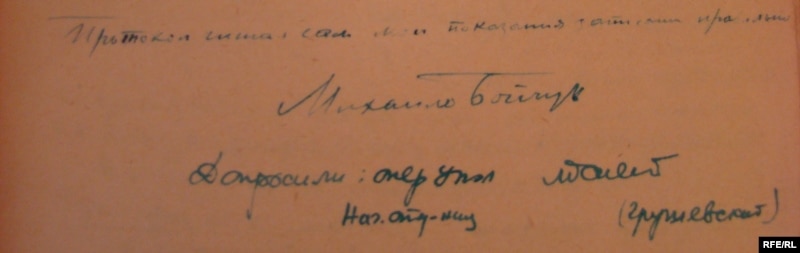 Протокол читал сам мои показания записаны правильно
Михайло Бойчук
Допросили: опер упол
Нач. (Грушевский)
RFE/RL